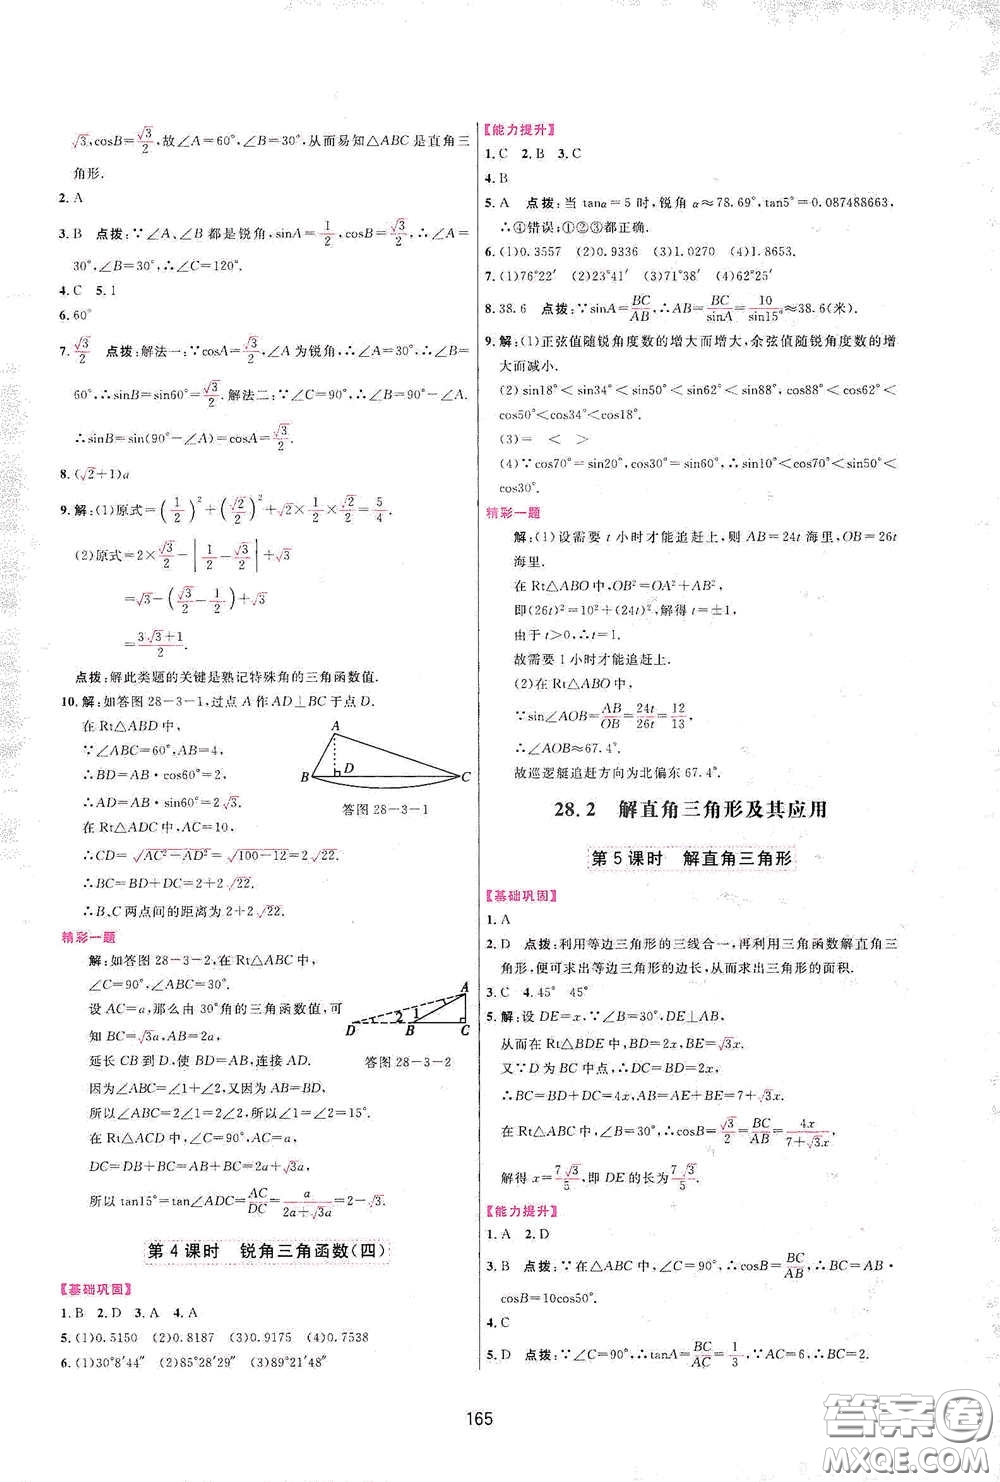 √3,cosB=√3/2,故∠A=60°,∠B=30°,从而易知△ABC是直角三
角形.
2. A
3. B 点拨:∵∠A、∠B都是锐角,sinA=1/2,cosB=√3/2,∴∠A=
30°,∠B=30°,∴∠C=120°.
4. C 5. 1
6. 60°
7. √3/2 点拨:解法一:∵cosA=√3/2,∠A为锐角,∴∠A=30°,∴∠B=
60°,∴sinB=sin60°=√3/2.解法二:∵∠C=90°,∴∠B=90°-∠A.
∴sinB=sin(90°-∠A)=cosA=√3/2.
8. (√2+1)a
9. 解:(1)原式=(1/2)²+(√2/2)²+√2×1/2×√2/2=5/4.
(2)原式=2×√3/2-|1/2-√3/2|+√3
=√3-(√3/2-1/2)+√3
=(3√3+1)/2.
点拨:解此类题的关键是熟记特殊角的三角函数值.
10. 解:如答图28-3-1,过点A作AD⊥BC于点D.
在Rt△ABD中,
∵∠ABC=60°,AB=4,
∴BD=AB·cos60°=2,
∴AD=AB·sin60°=2√3.
在Rt△ADC中,AC=10,
∴CD=√(AC²-AD²)=√(100-12)=2√22.
∴BC=BD+DC=2+2√22.
∴B、C两点间的距离为2+2√22.
A
B
D
C
答图28-3-1
精彩一题
解:如答图28-3-2,在Rt△ABC中,
∠C=90°,∠ABC=30°.
设AC=a,那么由30°角的三角函数值,可
知BC=√3a,AB=2a
延长CB到D,使BD=AB,连接AD.
因为∠ABC=∠1+∠2,又因为∠1=∠2,
所以∠ABC=2∠1=2∠2,所以∠2=15°.
在Rt△ACD中,∠C=90°,AC=a,
DC=DB+BC=AB+BC=2a+√3a,
所以tan15°=tan∠ADC=AC/DC=a/(2a+√3a)=2-√3.
A
2
1
D
B
C
答图28-3-2
第4课时 锐角三角函数(四)
【基础巩固】
1. B 2. D 3. A 4. A
5. (1)0.5150 (2)0.8187 (3)0.9175 (4)0.7538
6. (1)30°8′44″ (2)85°28′29″ (3)89°21′48″
【能力提升】
1. C 2. B 3. C
4. B
5. A 点拨:当tanα=5时,锐角α≈78.69°,tan5°=0.087488663,
∴④错误;①②③都正确.
6. (1)0.3557 (2)0.9336 (3)1.0270 (4)1.8653.
7. (1)76°22′ (2)23°41′ (3)71°38′ (4)62°25′
8. 38.6 点拨:∵sinA=BC/AB,∴AB=BC/sinA=10/sin15°≈38.6(米).
9. 解:(1)正弦值随锐角度数的增大而增大,余弦值随锐角度数的增
大而减小.
(2) sin18°<sin34°<sin50°<sin62°<sin88°,cos88°<cos62°<
cos50°<cos34°<cos18°.
(3)= < >
(4)∵cos70°=sin20°,cos30°=sin60°,∴sin10°<cos70°<sin50°<
cos30°.
精彩一题
解:(1)设需要t小时才能追赶上,则AB=24t海里,OB=26t
海里.
在Rt△ABO中,OB²=OA²+AB²,
即(26t)²=10²+(24t)²,解得t=±1,
由于t>0,∴t=1.
故需要1小时才能追赶上.
(2)在Rt△ABO中,
∵sin∠AOB=AB/OB=24t/26t=12/13
∴∠AOB≈67.4°.
故巡逻艇追赶方向为北偏东67.4°.
28.2 解直角三角形及其应用
第5课时 解直角三角形
【基础巩固】
1. A
2. D 点拨:利用等边三角形的三线合一,再利用三角函数解直角三
角形,便可求出等边三角形的边长,从而求出三角形的面积.
3. C 4. 45° 45°
5. 解:设DE=x,∵∠B=30°,DE⊥AB,
从而在Rt△BDE中,BD=2x,BE=√3x.
又∵D为BC中点,∴BD=DC=2x.
∴BC=BD+DC=4x,AB=AE+BE=7+√3x.
在Rt△ABC中,∠B=30°,∴cosB=√3/2=BC/AB=4x/(7+√3x).
解得x=7√3/5,即DE的长为7√3/5.
【能力提升】
1. A 2. D
3. B 点拨:∵在△ABC中,∠C=90°,∴cosB=BC/AB,∴BC=AB·
cosB=10cos50°.
4. C
5. D 点拨:∵∠C=90°,∴tanA=BC/AC=1/3,∵AC=6,∴BC=2.
165
答案圈
MXQE.COM